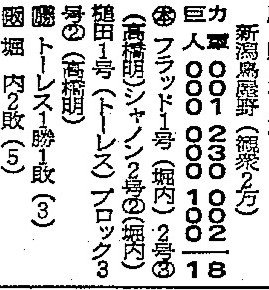 新潟鳥屋野(観衆2万)
カ軍 001 230 002 8
巨人 000 000 100 1
本 フラッド1号(堀内)2号③
(高橋明)シャノン2号②(堀内)
槌田1号(トーレス)ブロック3
号②(高橋明)
勝 トーレス1勝1敗(3)
敗 堀内2敗(5)